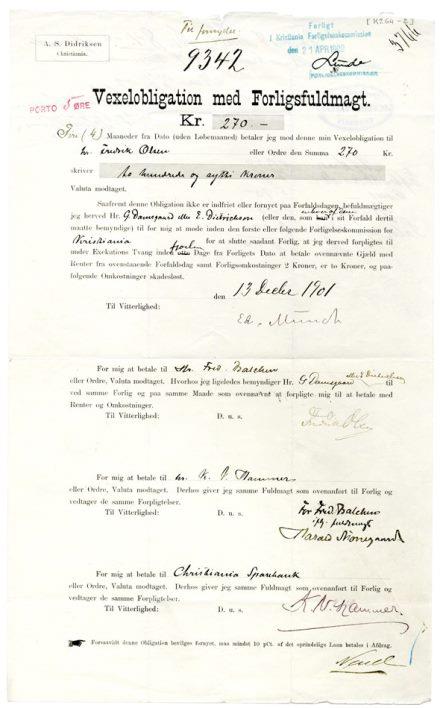 [K 264 - 2]
Til fornyelse
A. S. Didriksen
Christiania.
9342
Forligt
i Kristiania Forligelseskommission
den 21 APR. 1902
FORLIGELSESKOMMISSION
PORTO 5 ØRE
Vexelobligation med Forligsfuldmagt.
Kr. 270 —
Fire (4) Maaneder fra Dato (uden Løbemaaned) betaler jeg mod denne min Vexelobligation til
hr. Fredrik Olsen eller Ordre den Summa 270 Kr.
skriver to hundrede og sytti Kroner
Valuta modtaget.
Saafremt denne Obligation ikke er indfriet eller fornyet paa Forfaldsdagen, befuldmægtiger
jeg herved Hr. G Damsgaard eller E. Didrickson (eller den, som i sit Forfald dertil
maatte bemyndige) til for mig at møde inden den første eller følgende Forligelseskommission for
Kristiania for at slutte saadant Forlig, at jeg derved forpligtes til
under Exekutions Tvang inden fjorten Dage fra Forligets Dato at betale ovennævnte Gjeld med
Renter fra ovenstaaende Forfaldsdag samt Forligsomkostninger 2 Kroner, er to Kroner, og paa-
følgende Omkostninger skadesløst.
den 13 Decbr 1901
Til Vitterlighed:
Ed. Munch
For mig at betale til Hr. Fred. Balchen
eller Ordre, Valuta modtaget. Hvorhos jeg ligeledes bemyndiger Hr. G Damsgaard til
ved samme Forlig og paa samme Maade som ovenanført at forpligte mig til at betale med
Renter og Omkostninger.
Til Vitterlighed: D. u. s.
Fredrik Olsen
For mig at betale til hr. K. V. Hammer
eller Ordre, Valuta modtaget. Derhos giver jeg samme Fuldmagt som ovenanført til Forlig og
vedtager de samme Forpligtelser.
Til Vitterlighed: D. u. s.
For Fred. Balchen
ifg. fuldmagt
Harald Nørregaard
For mig at betale til Christiania Sparebank
eller Ordre, Valuta modtaget. Derhos giver jeg samme Fuldmagt som ovenanført til Forlig og
vedtager de samme Forpligtelser.
Til Vitterlighed: D. u. s.
K. V. Hammer.
Forsaavidt denne Obligation bevilges fornyet, maa mindst 10 pCt. af det oprindelige Laan betales i Afdrag.